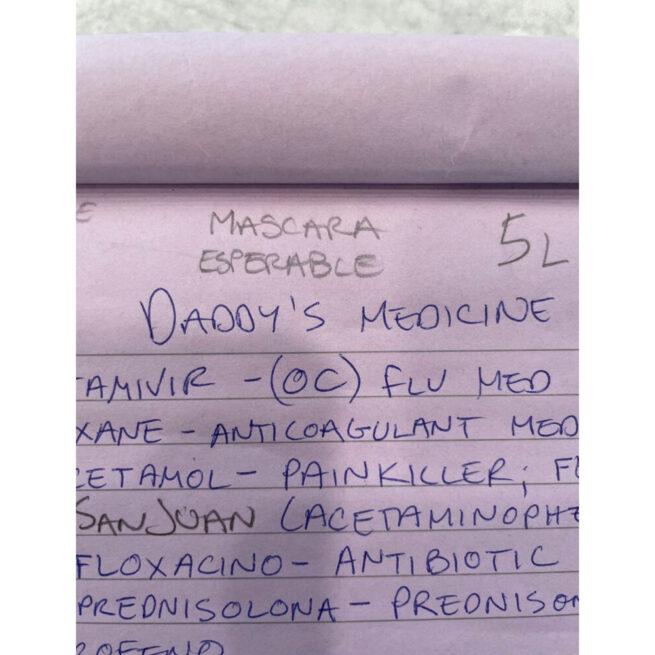 E
MASCARA
ESPERABLE
5L
DADDY'S MEDICINE
TAMIVIR - (OC) FLU MED
XANE - ANTICOAGULANT MED
CETAMOL - PAINKILLER; F
SANJUAN (ACETAMINOPHE
FLOXACINO - ANTIBIOTIC
PREDNISOLONA - PREDNISON
ROFENO